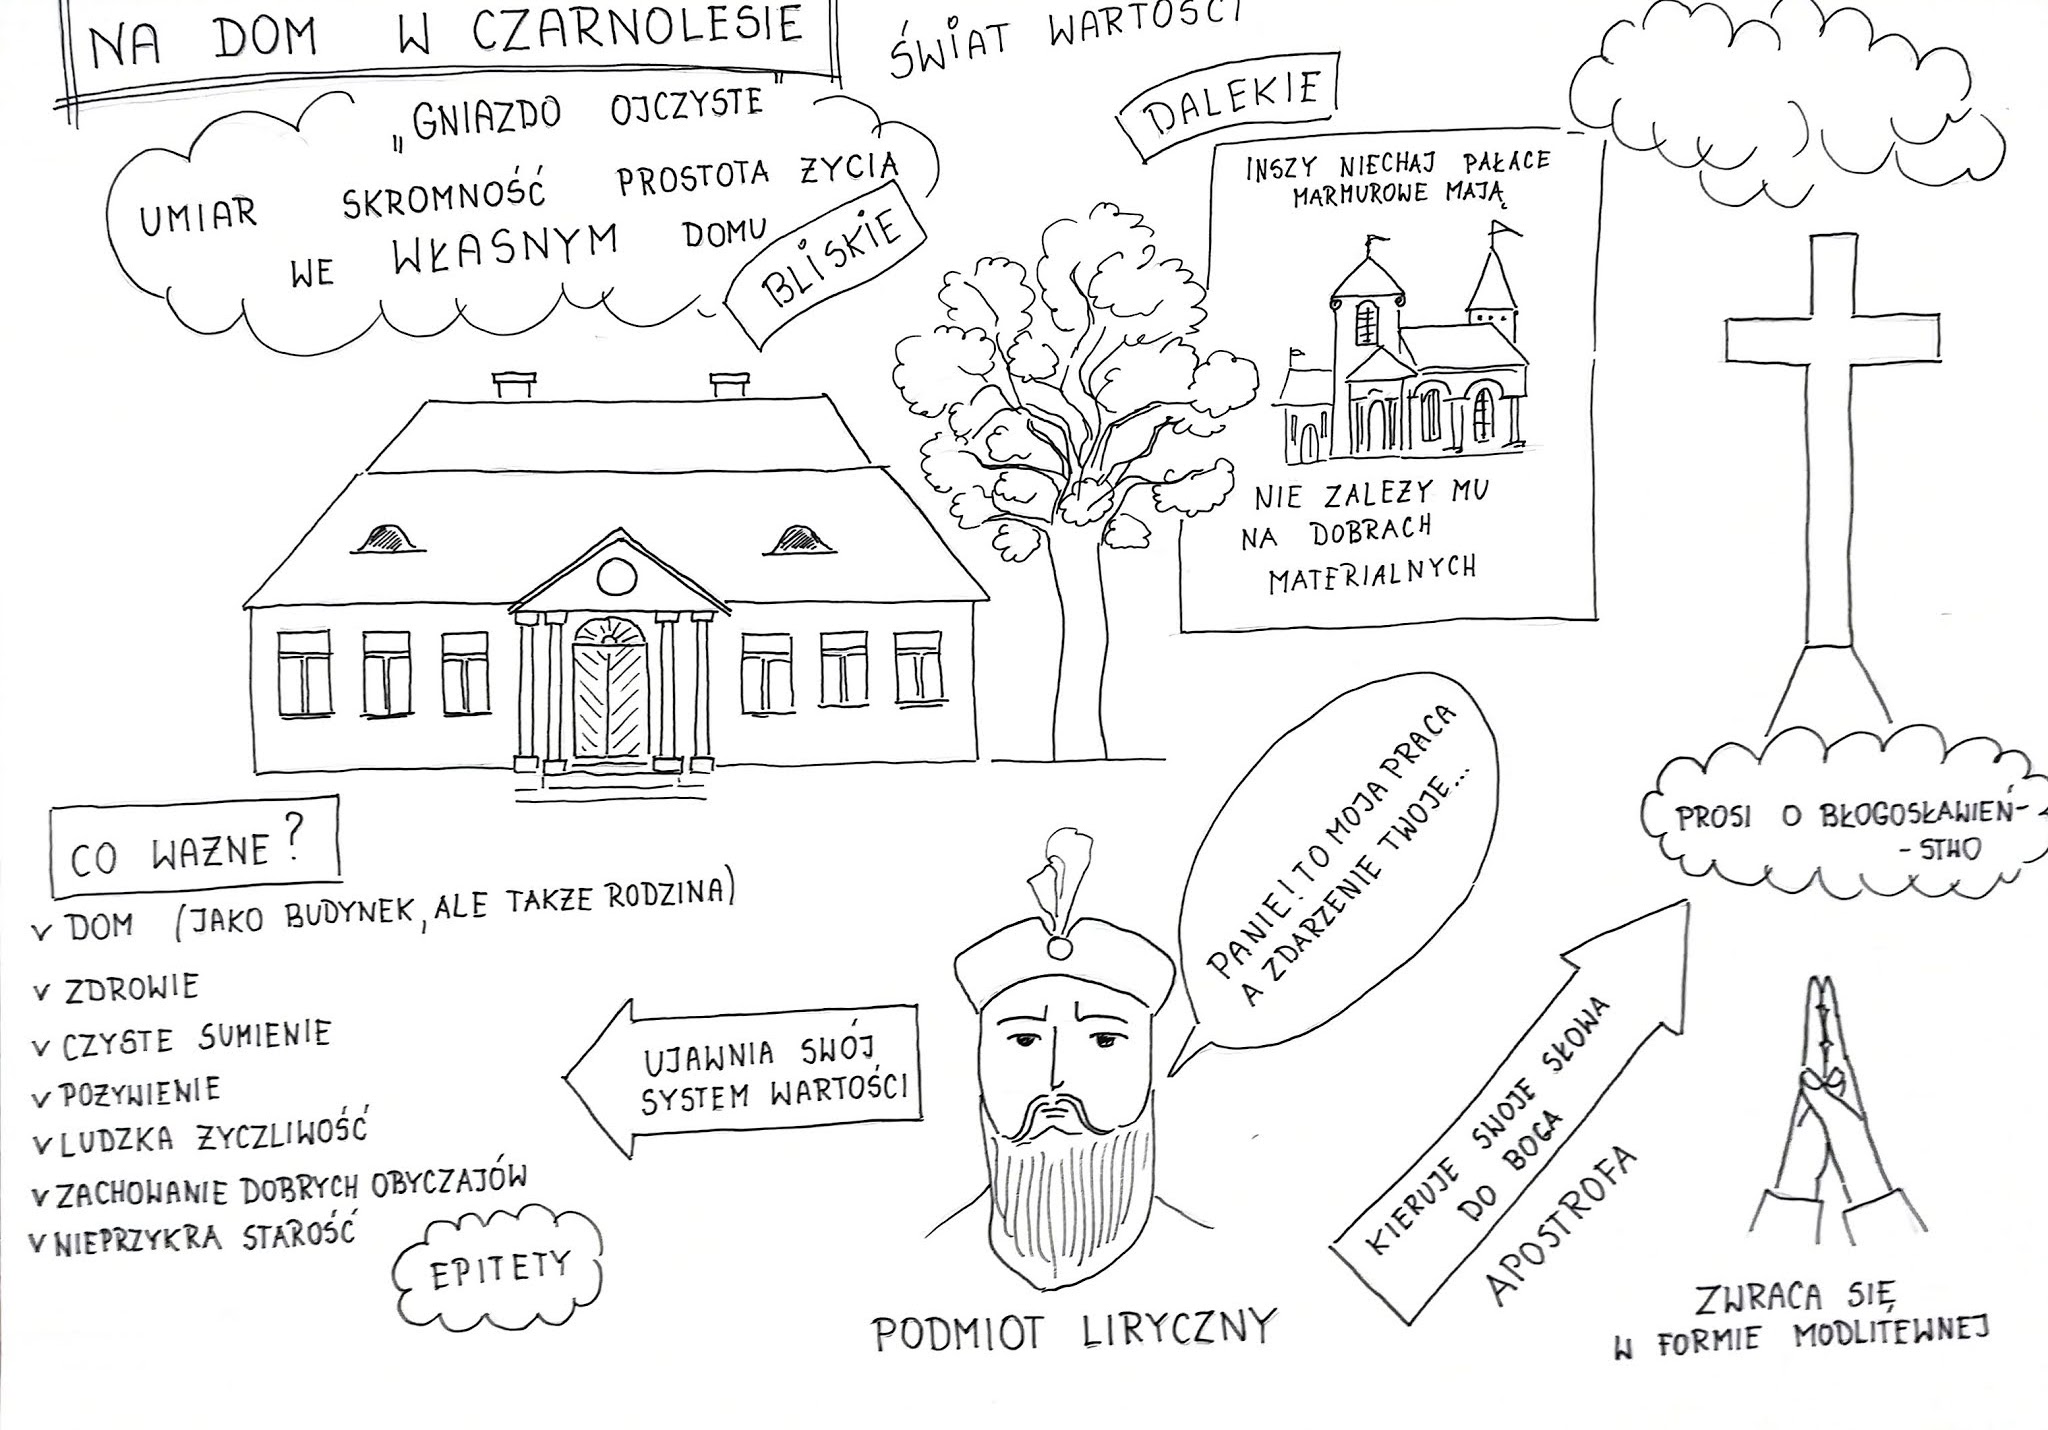 NA DOM W CZARNOLESIE
ŚWIAT WARTOŚCI
„GNIAZDO OJCZYSTE"
UMIAR SKROMNOŚĆ PROSTOTA ŻYCIA
WE WŁASNYM DOMU
BLISKIE
DALEKIE
INSZY NIECHAJ PAŁACE
MARMUROWE MAJĄ
NIE ZALEŻY MU
NA DOBRACH
MATERIALNYCH
CO WAŻNE?
v DOM (JAKO BUDYNEK, ALE TAKŻE RODZINA)
v ZDROWIE
v CZYSTE SUMIENIE
v POŻYWIENIE
v LUDZKA ŻYCZLIWOŚĆ
v ZACHOWANIE DOBRYCH OBYCZAJÓW
v NIEPRZYKRA STAROŚĆ
EPITETY
UJAWNIA SWÓJ
SYSTEM WARTOŚCI
PANIE! TO MOJA PRACA
A ZDARZENIE TWOJE...
PODMIOT LIRYCZNY
KIERUJE SWOJE SŁOWA
DO BOGA
APOSTROFA
PROSI O BŁOGOSŁAWIEŃ-
- STWO
ZWRACA SIĘ
W FORMIE MODLITEWNEJ